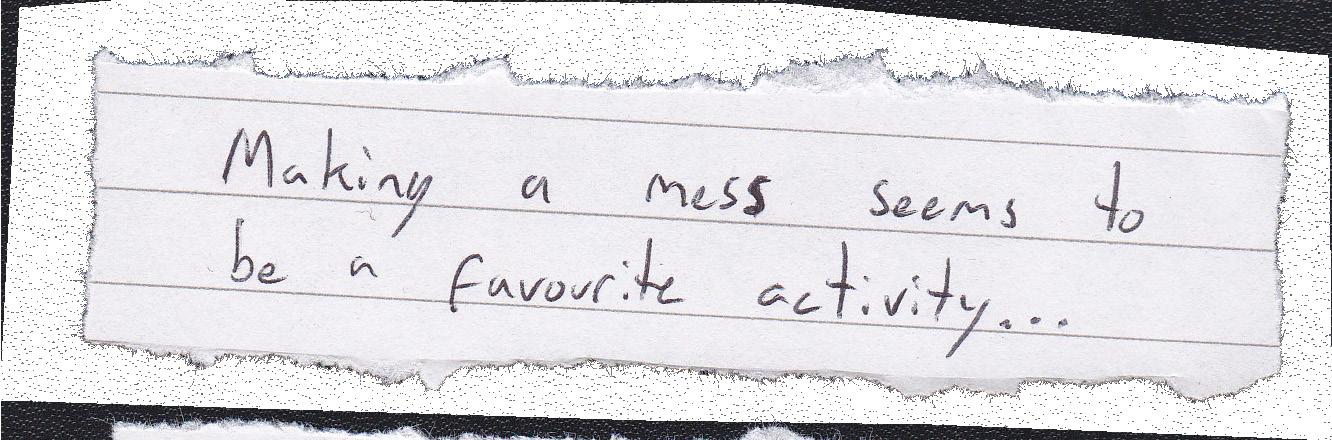 Making a mess seems to
be a favourite activity...